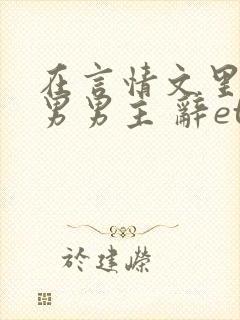 在言情文里
男男主 辭et
於建嶸